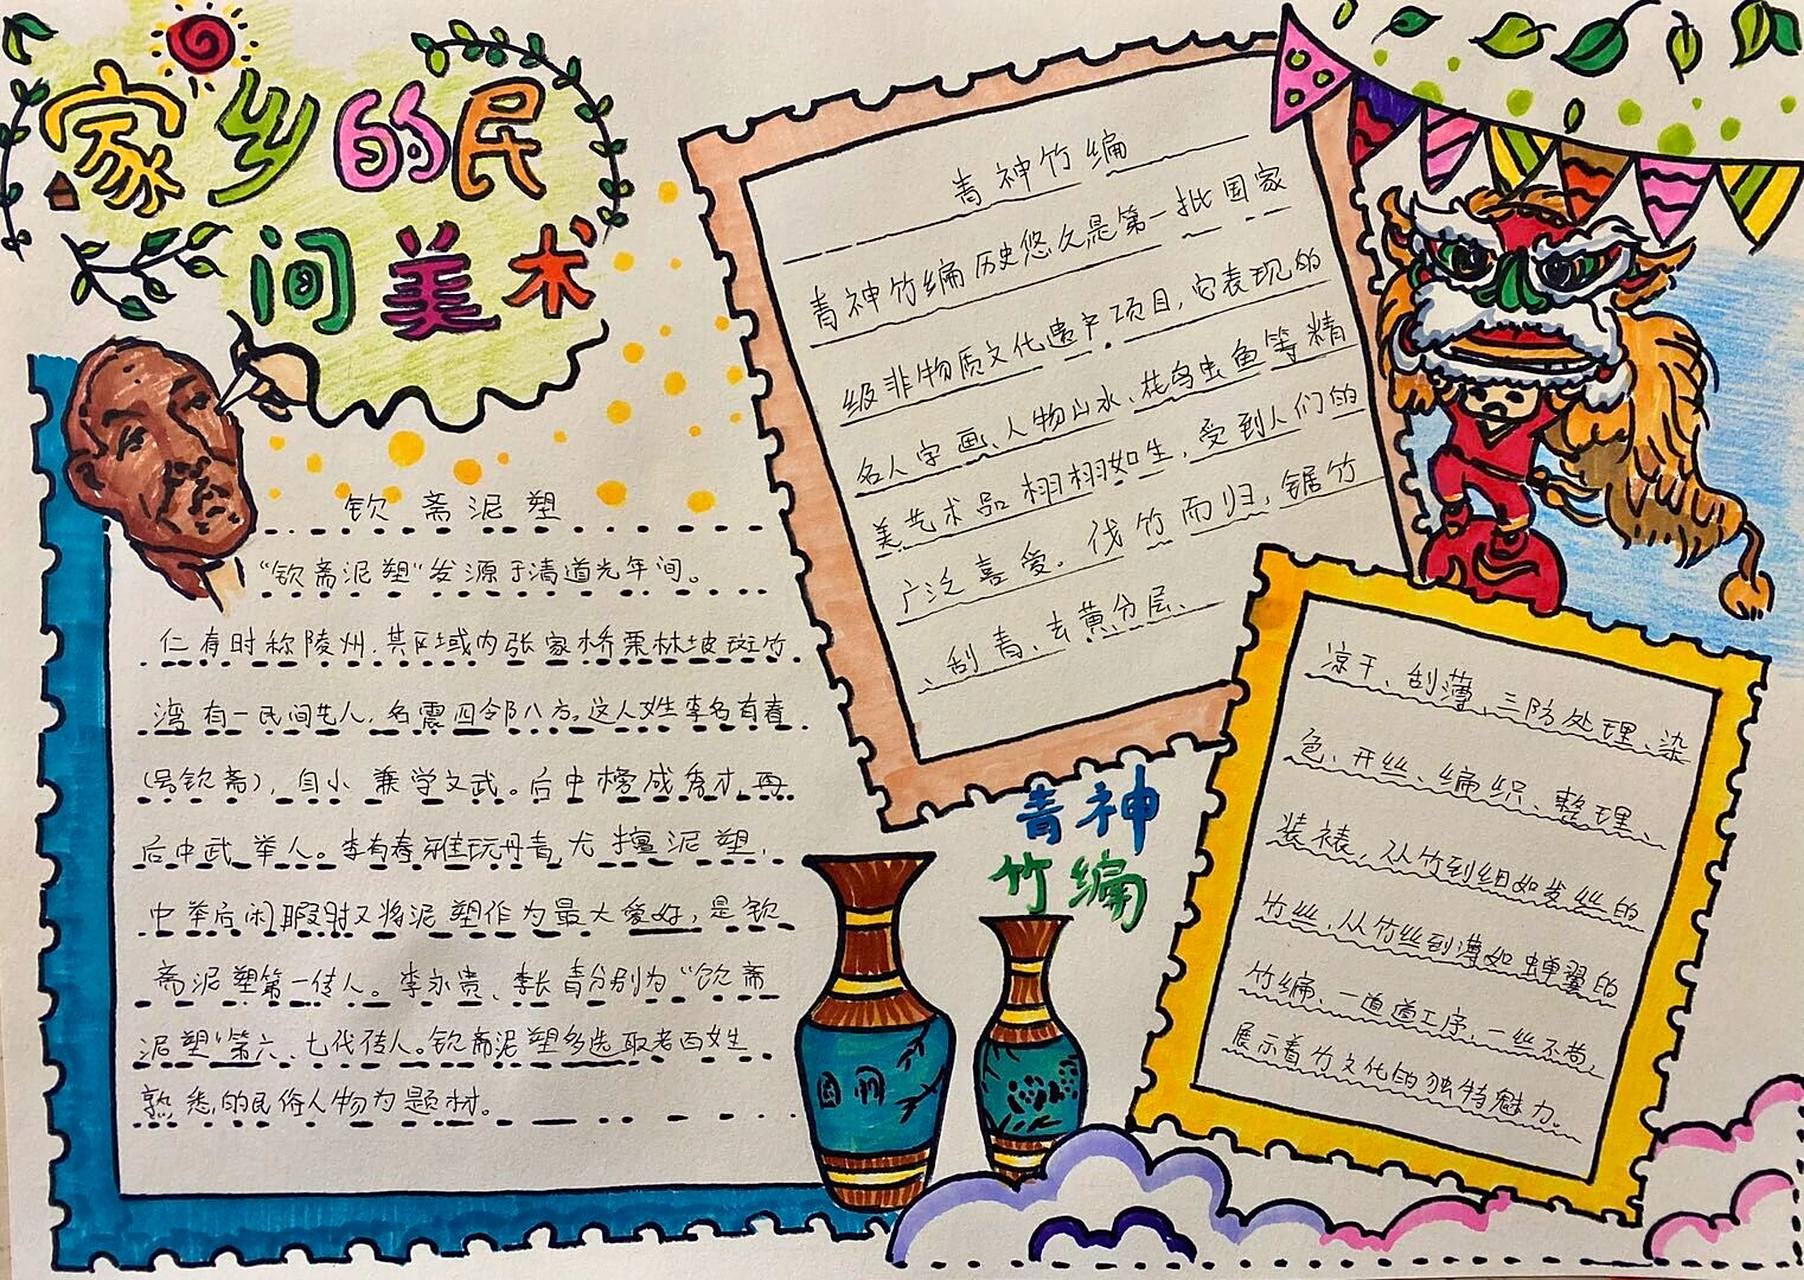 家乡的民
间美术
钦斋泥塑
“钦斋泥塑”发源于清道光年间。
仁有时称陵州.共区域内张家桥栗林坡斑竹
湾有一民间艺人,名震四邻八方。这人姓李名有春
(号钦斋),自小兼学文武。后中榜成秀才,再
后中武举人。李有春雅玩丹青,尤擅泥塑,
中举后闲暇时又将泥塑作为最大爱好,是钦
斋泥塑第一传人。李永贵、李长青分别为“钦斋
泥塑”第六、七代传人。钦斋泥塑多选取老百姓
熟悉的民俗人物为题材。
青神竹编
青神竹编历史悠久是第一批国家
级非物质文化遗产项目,它表现的
名人字画、人物山水、花鸟虫鱼等精
美艺术品栩栩如生,受到人们的
广泛喜爱。伐竹而归,锯竹
、刮青、去黄分层、
青神
竹编
凉干、刮薄、三防处理、染
色、开丝、编织、整理、
装裱,从竹到细如发丝的
竹丝,从竹丝到薄如蝉翼的
竹编、一道道工序,一丝不苟,
展示着竹文化的独特魅力。